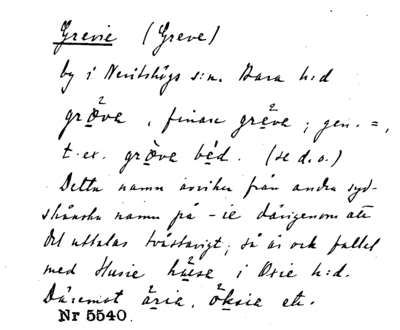 Grevie (Greve)
by i Nevitshögs s:n. Bara h:d
grö̱va, finare gre̱va; gen. =,
t. ex. grö̱va be̱d. (se d. o.)
Detta namn avviker från andra syd-
skånska namn på -ie därigenom att
det uttalas tvåstavigt; så är ock fallet
med Husie hu̱se i Oxie h:d.
Däremot ä̱ria, ö̱ksia etc.
Nr 5540